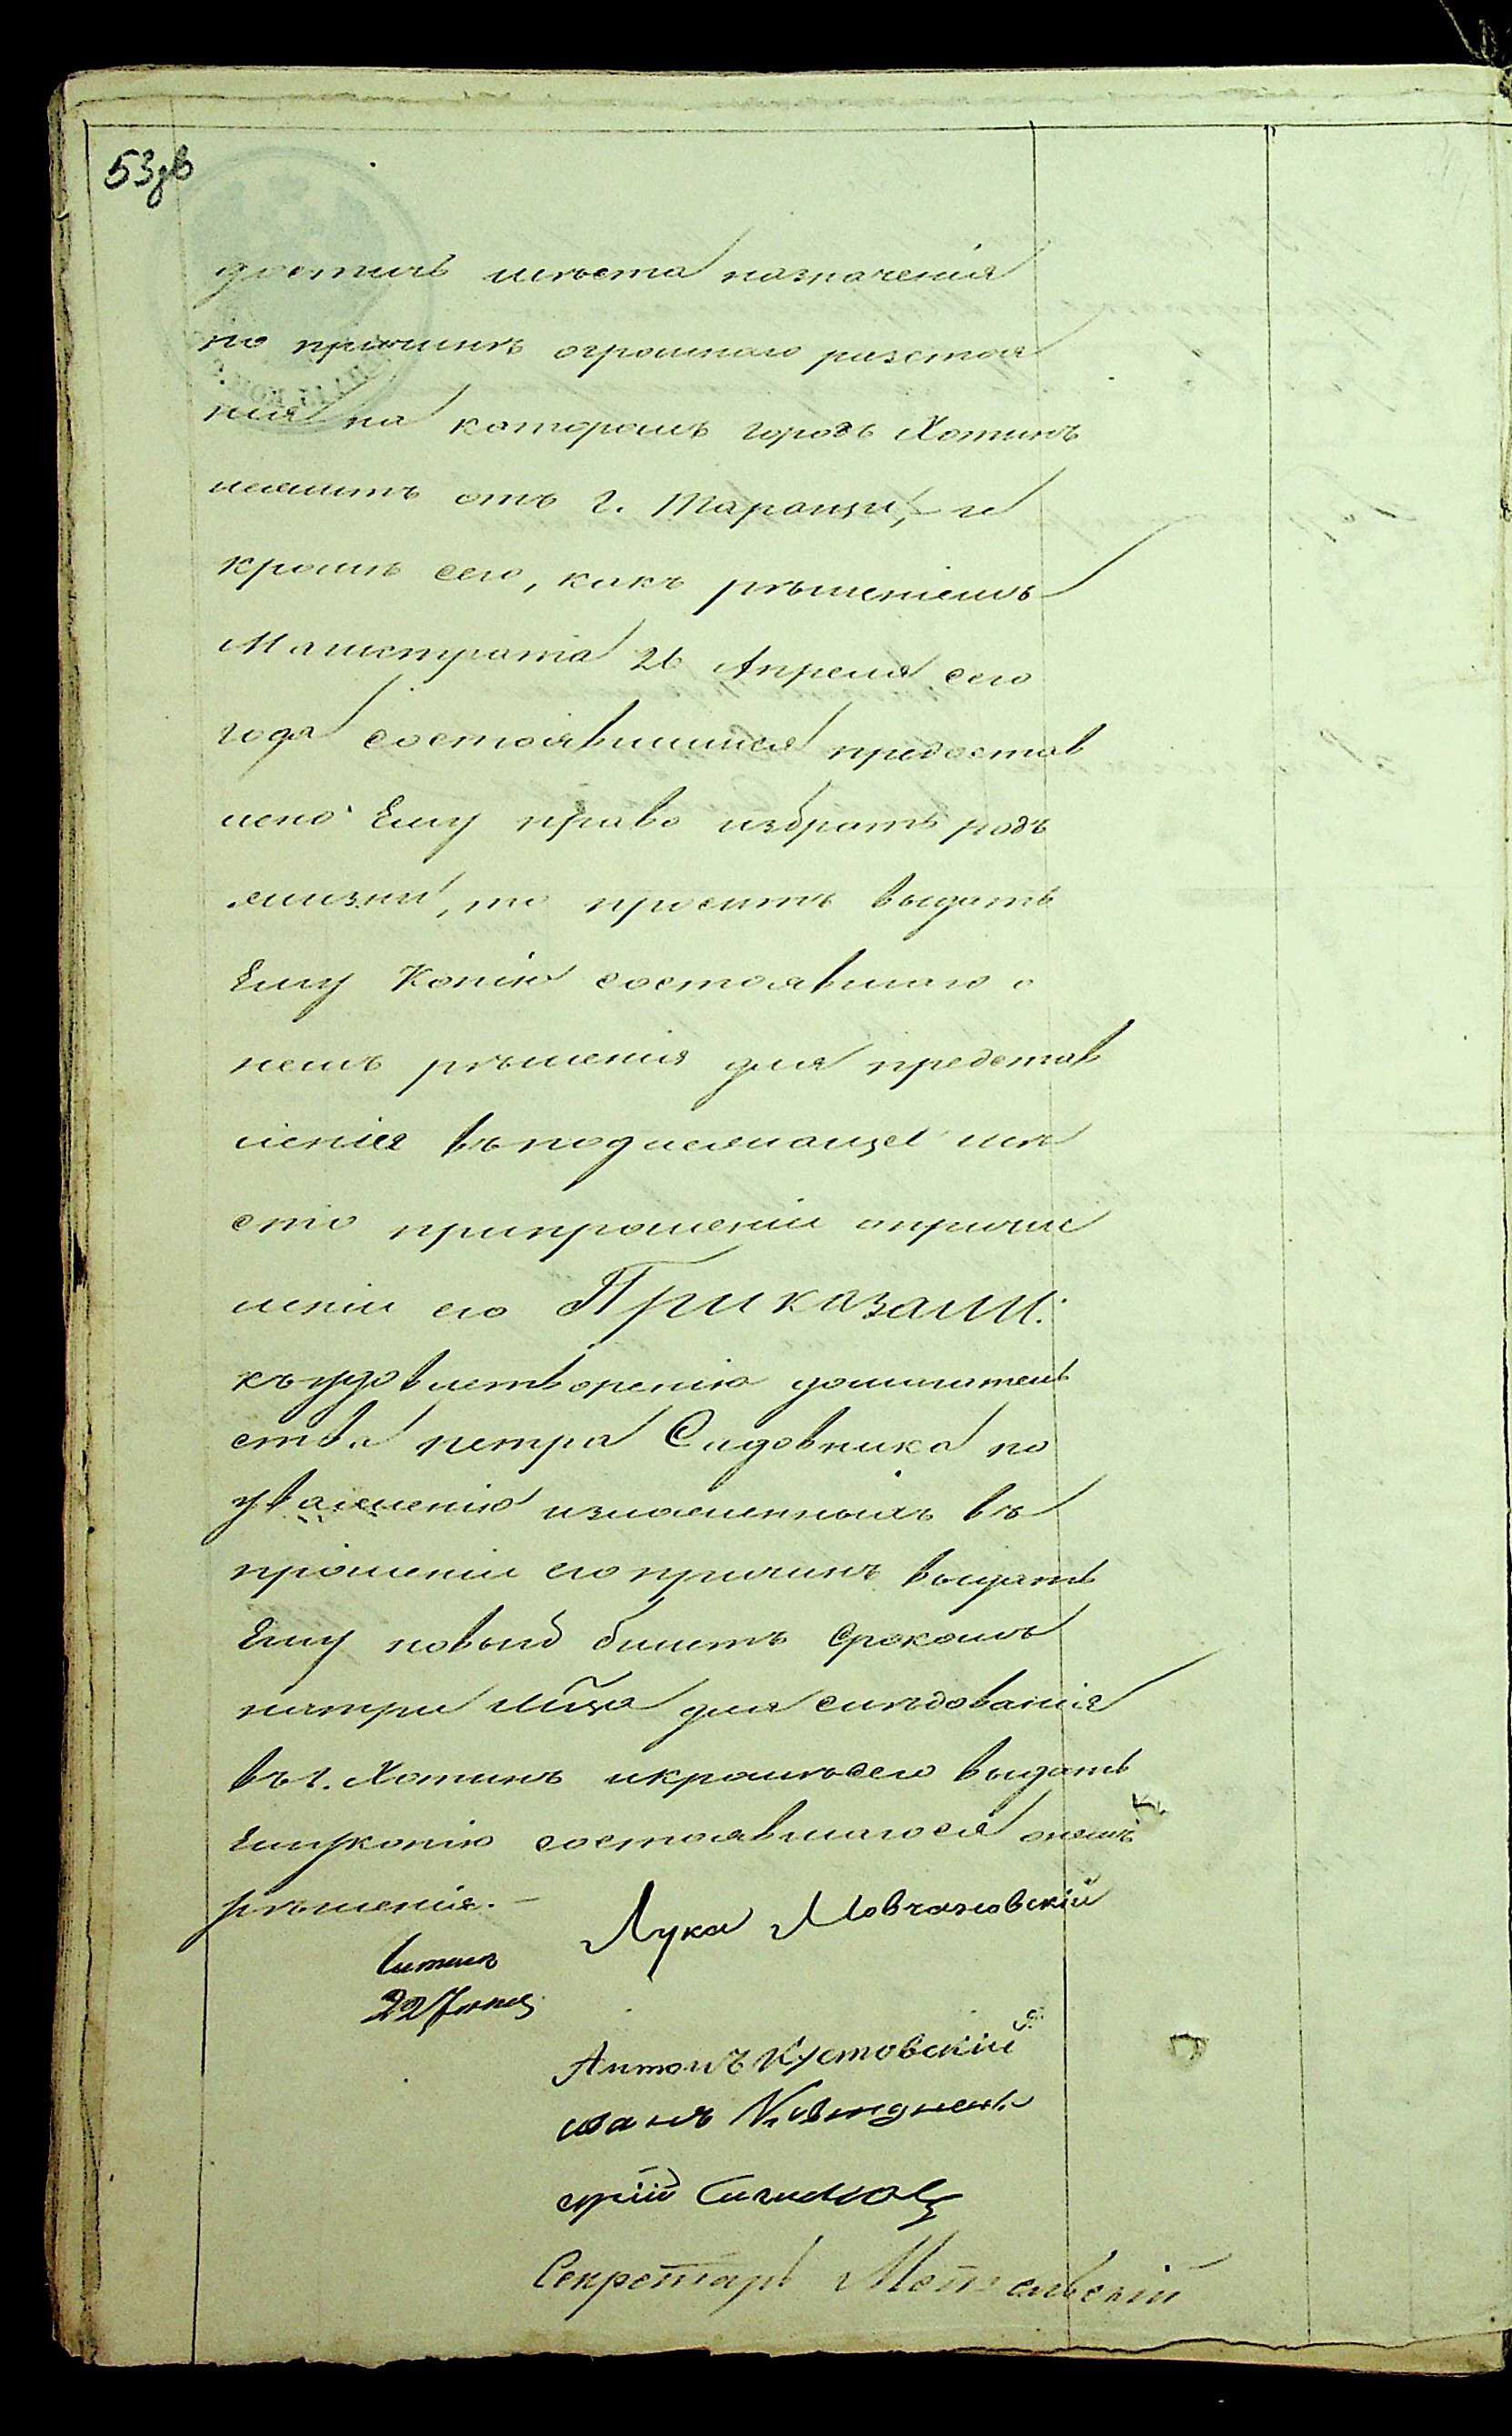 53зв
достичь места назначенія
по причинѣ огромнаго разстоя
нія на каторомъ городъ Хотинъ
лежитъ отъ г. Таращи, и
кромѣ сего, какъ рѣшеніемъ
Магистрата 26 Апреля сего
года состоявшимся предостав
лено Ему право избрать родъ
жизни, то проситъ выдать
Ему Копію состоявшаго о
немъ рѣшенія для представ
ленія въ подлежащее мѣ
сто припрошеніи опричис
леніи его Приказали:
къ удовлетворенію домагатель
ства петра Садовника по
уваженію изложенныхъ въ
прошеніи его причинъ выдать
Ему новый билетъ срокомъ
натри мца для слѣдованія
въ г. Хотинъ икромѣ сего выдать
Ему копію состоявшагося онемъ
рѣшенія.-
Лука Мовчановскій
читалъ
22 Іюня
Антонъ Кустовскій
Секретарь